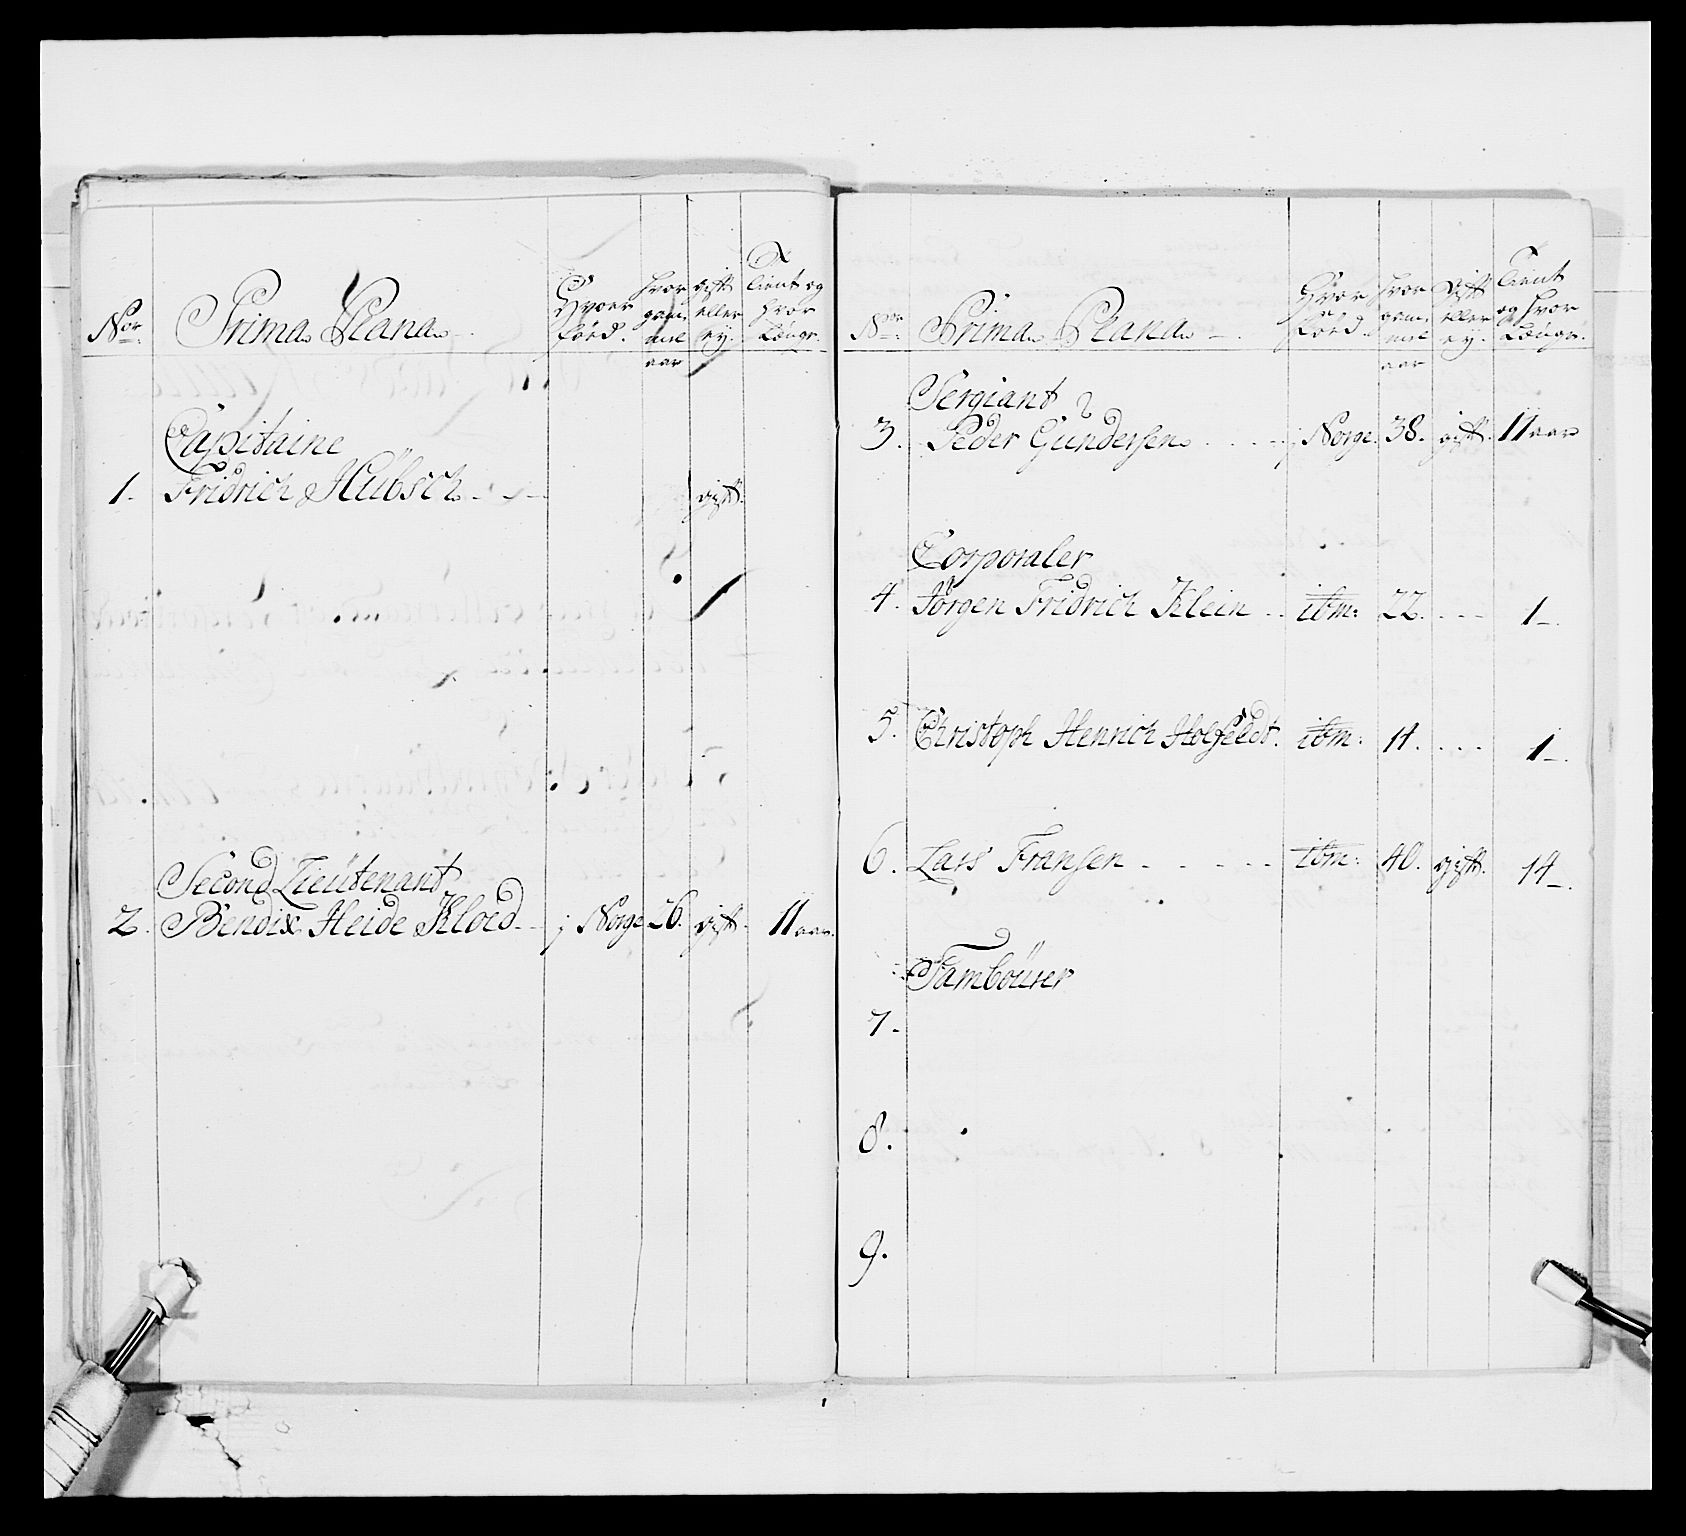 Nor: Prima Plana Hvoer föed. hvor gam, mel aar gift eller ey. Tient og hvor længe.
Capitaine
1. Fridrich Hübsch gift.
Second Lieütenant
2. Bendix Heide Kloed j Norge 26. gift. 11 aar.
Nor: Prima Plana Hvor föed. hvor gam, mel aar Gift eller ey. Tient og hvor længe.
Sergiant
3. Peder Gundersen j Norge. 38. gift. 11 aar
Corporaler
4. Jörgen Fridrich Klein ibm: 22. 1.
5. Christoph Henrich Holfeldt. ibm: 14. 1.
6. Lars Fransen ibm: 40. gift. 14.
Tamboürer
7.
8.
9.